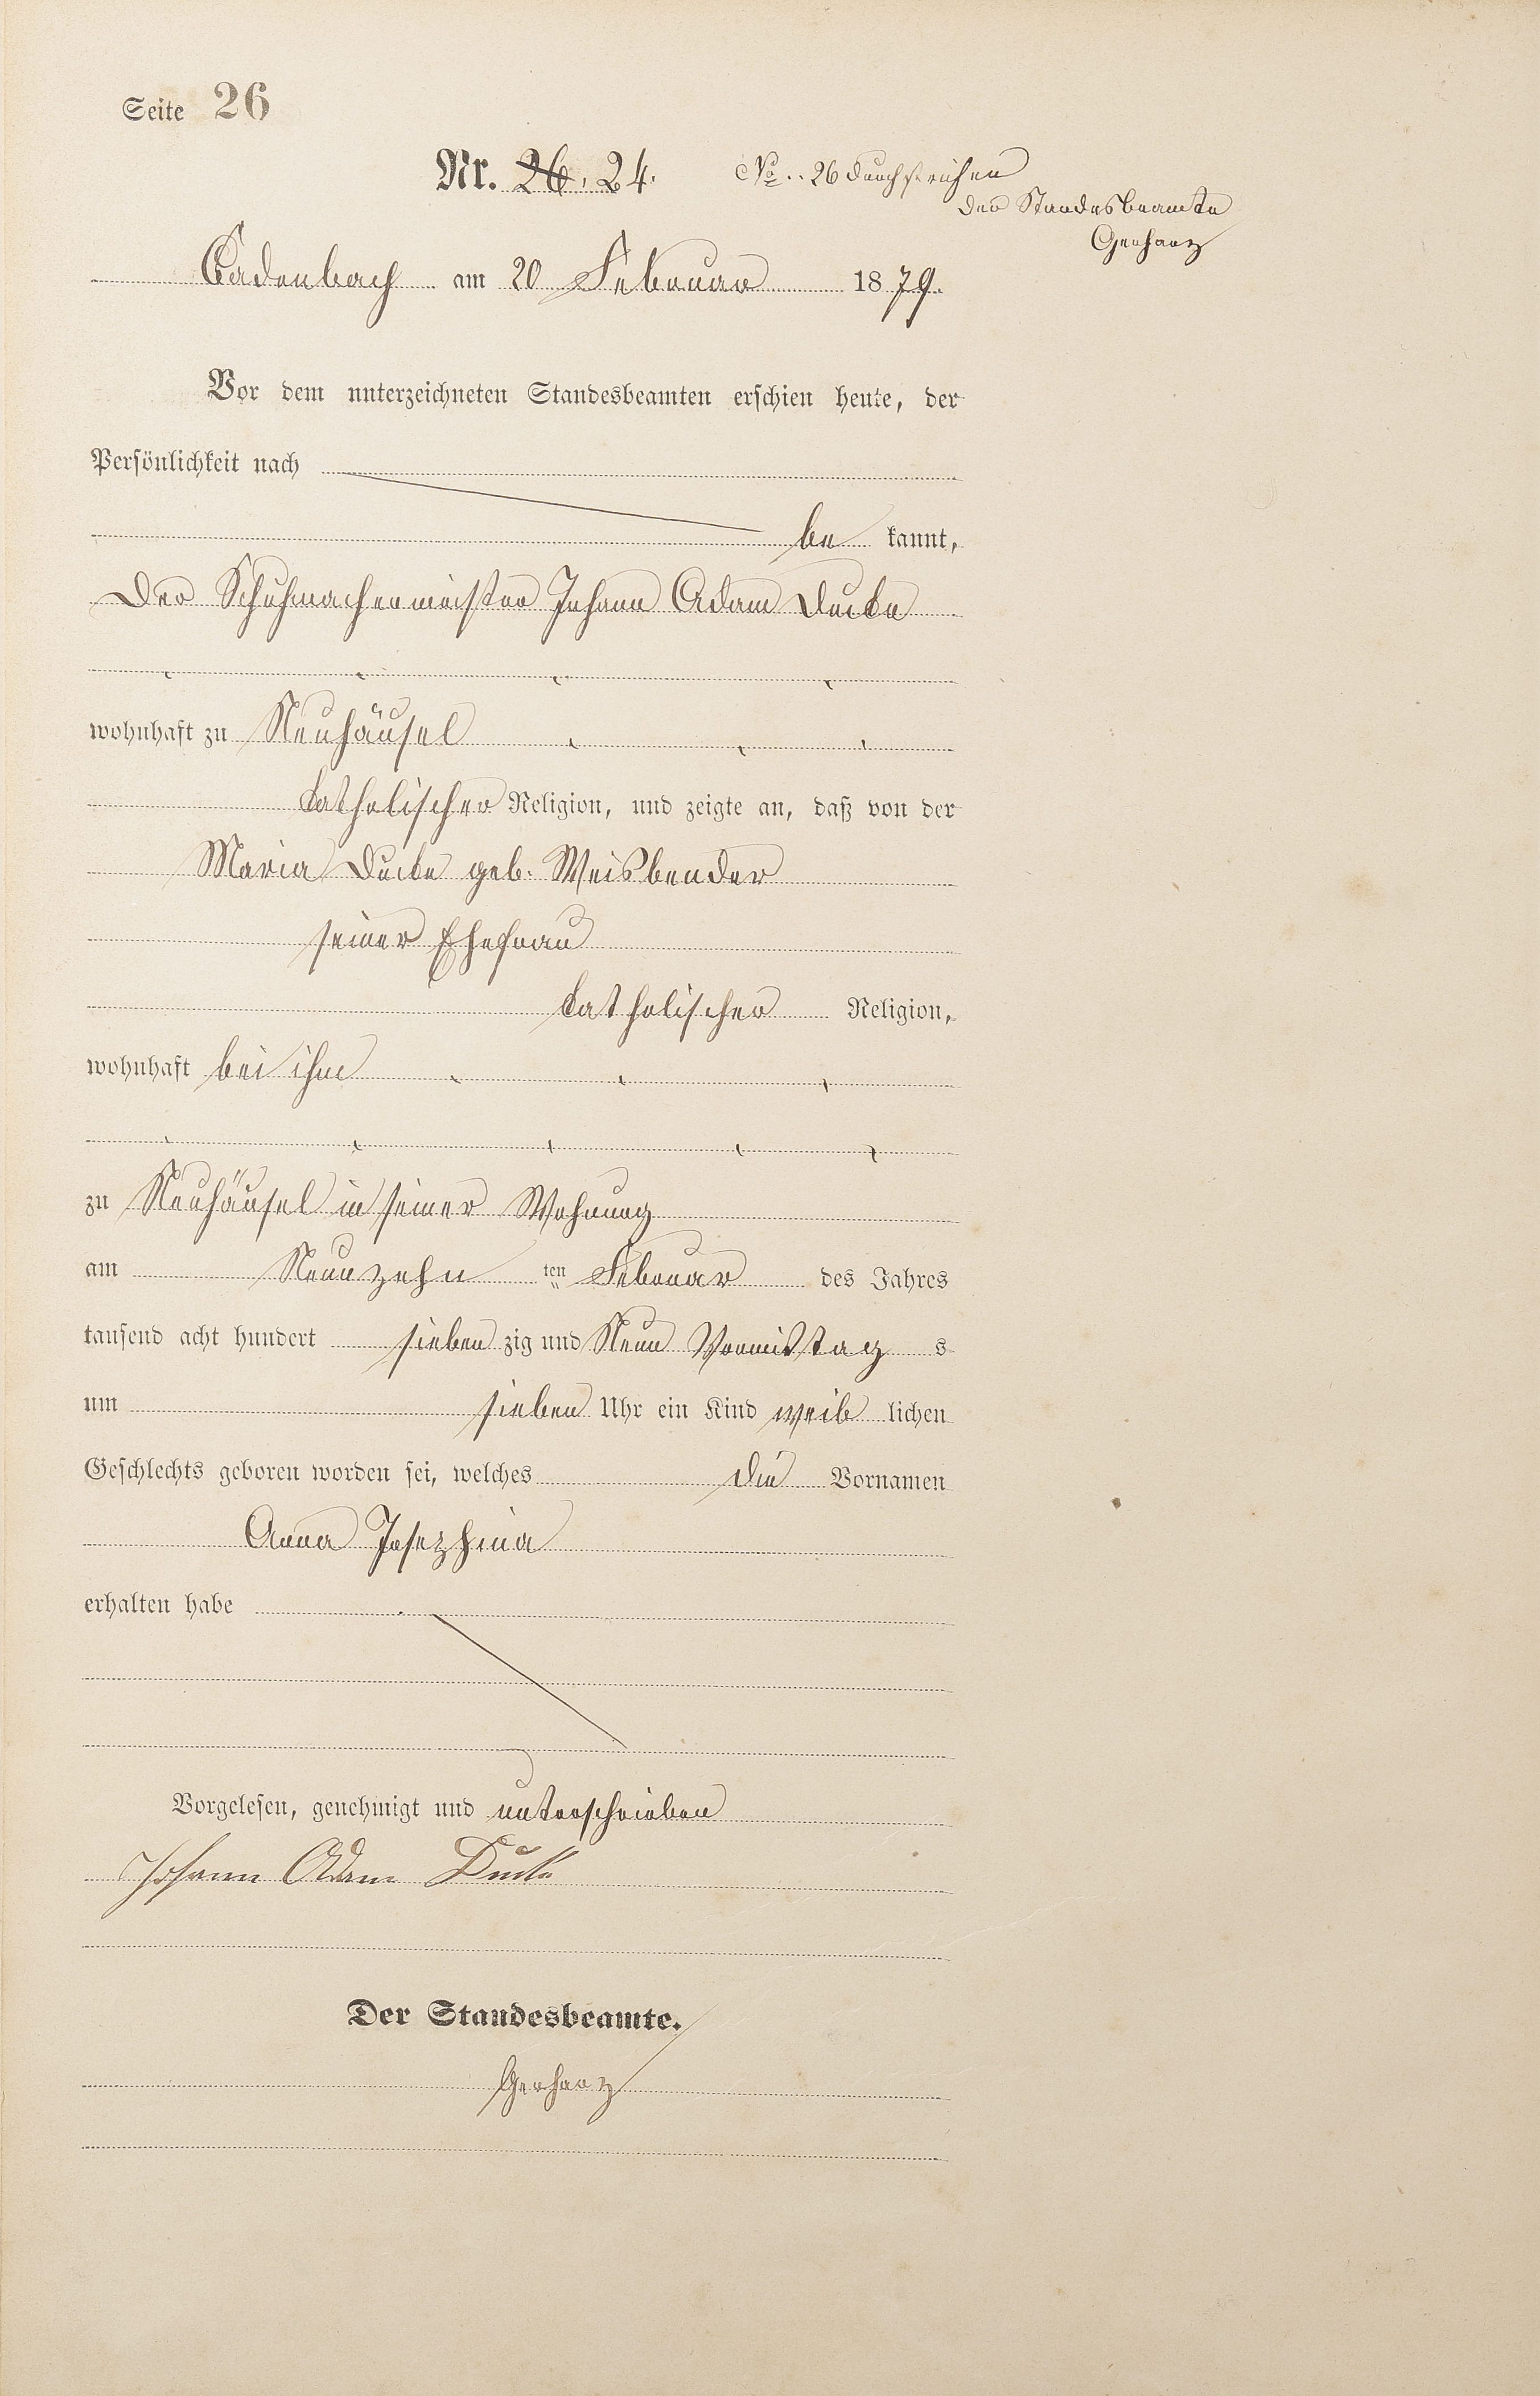 Seite 26
Nr. 26. 24.
No. 26 durchstrichen
der Standesbeamte
Gerharz
Cadenbach am 20 Februar 1879.
Vor dem unterzeichneten Standesbeamten erschien heute, der
Persönlichkeit nach
be kannt,
der Schuhmachermeister Johann Adam
wohnhaft zu Neuhäusel
katholischer Religion, und zeigte an, daß von der
Maria geb. Weisbender
seiner Ehefrau
katholischer Religion,
wohnhaft bei ihm
zu Neuhäusel in seiner Wohnung
am Neunzehn ten Februar des Jahres
tausend acht hundert sieben zig und Neun Vormittag s
um sieben Uhr ein Kind weib lichen
Geschlechts geboren worden sei, welches die Vornamen
Anna Josephina
erhalten habe
Vorgelesen, genehmigt und unterschrieben
Johann Adam
Der Standesbeamte.
Gerharz